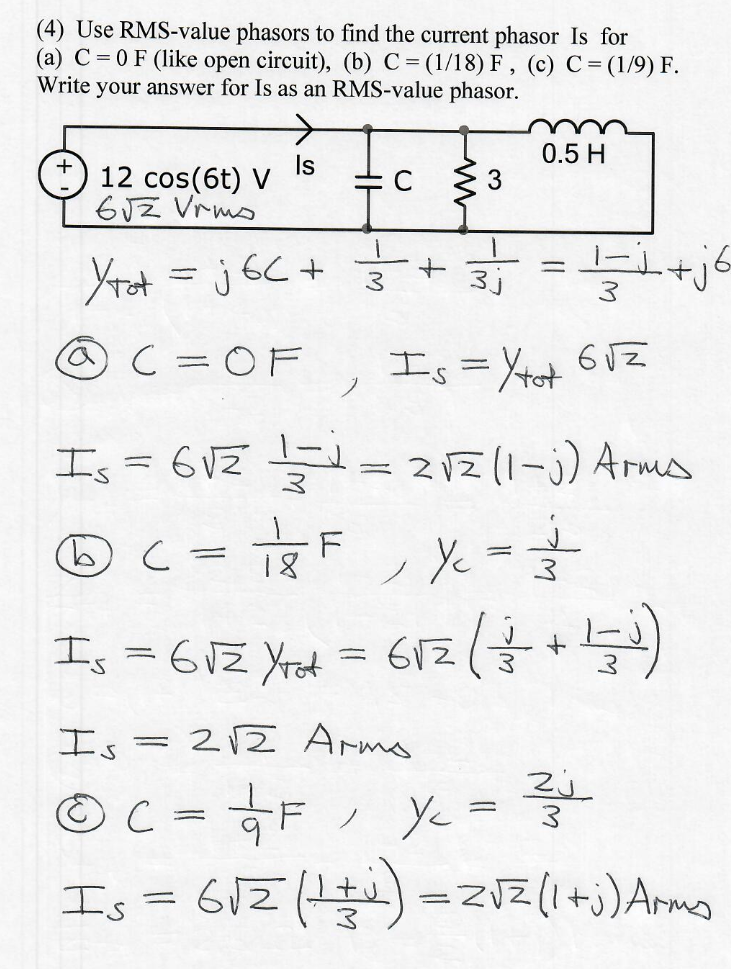 (4) Use RMS-value phasors to find the current phasor Is for
(a) C = 0 F (like open circuit), (b) C = (1/18) F , (c) C = (1/9) F.
Write your answer for Is as an RMS-value phasor.
Is
0.5 H
+
-
12 cos(6t) V
C
3
6√2 Vrms
Ytot = j6C + 1/3 + 1/3j = (1-j)/3 + j6
(a) C = 0F , Is = Ytot 6√2
Is = 6√2 (1-j)/3 = 2√2 (1-j) Arms
(b) C = 1/18 F , Yc = j/3
Is = 6√2 Ytot = 6√2 (j/3 + (1-j)/3)
Is = 2√2 Arms
(c) C = 1/9 F , Yc = 2j/3
Is = 6√2 ((1+j)/3) = 2√2 (1+j) Arms